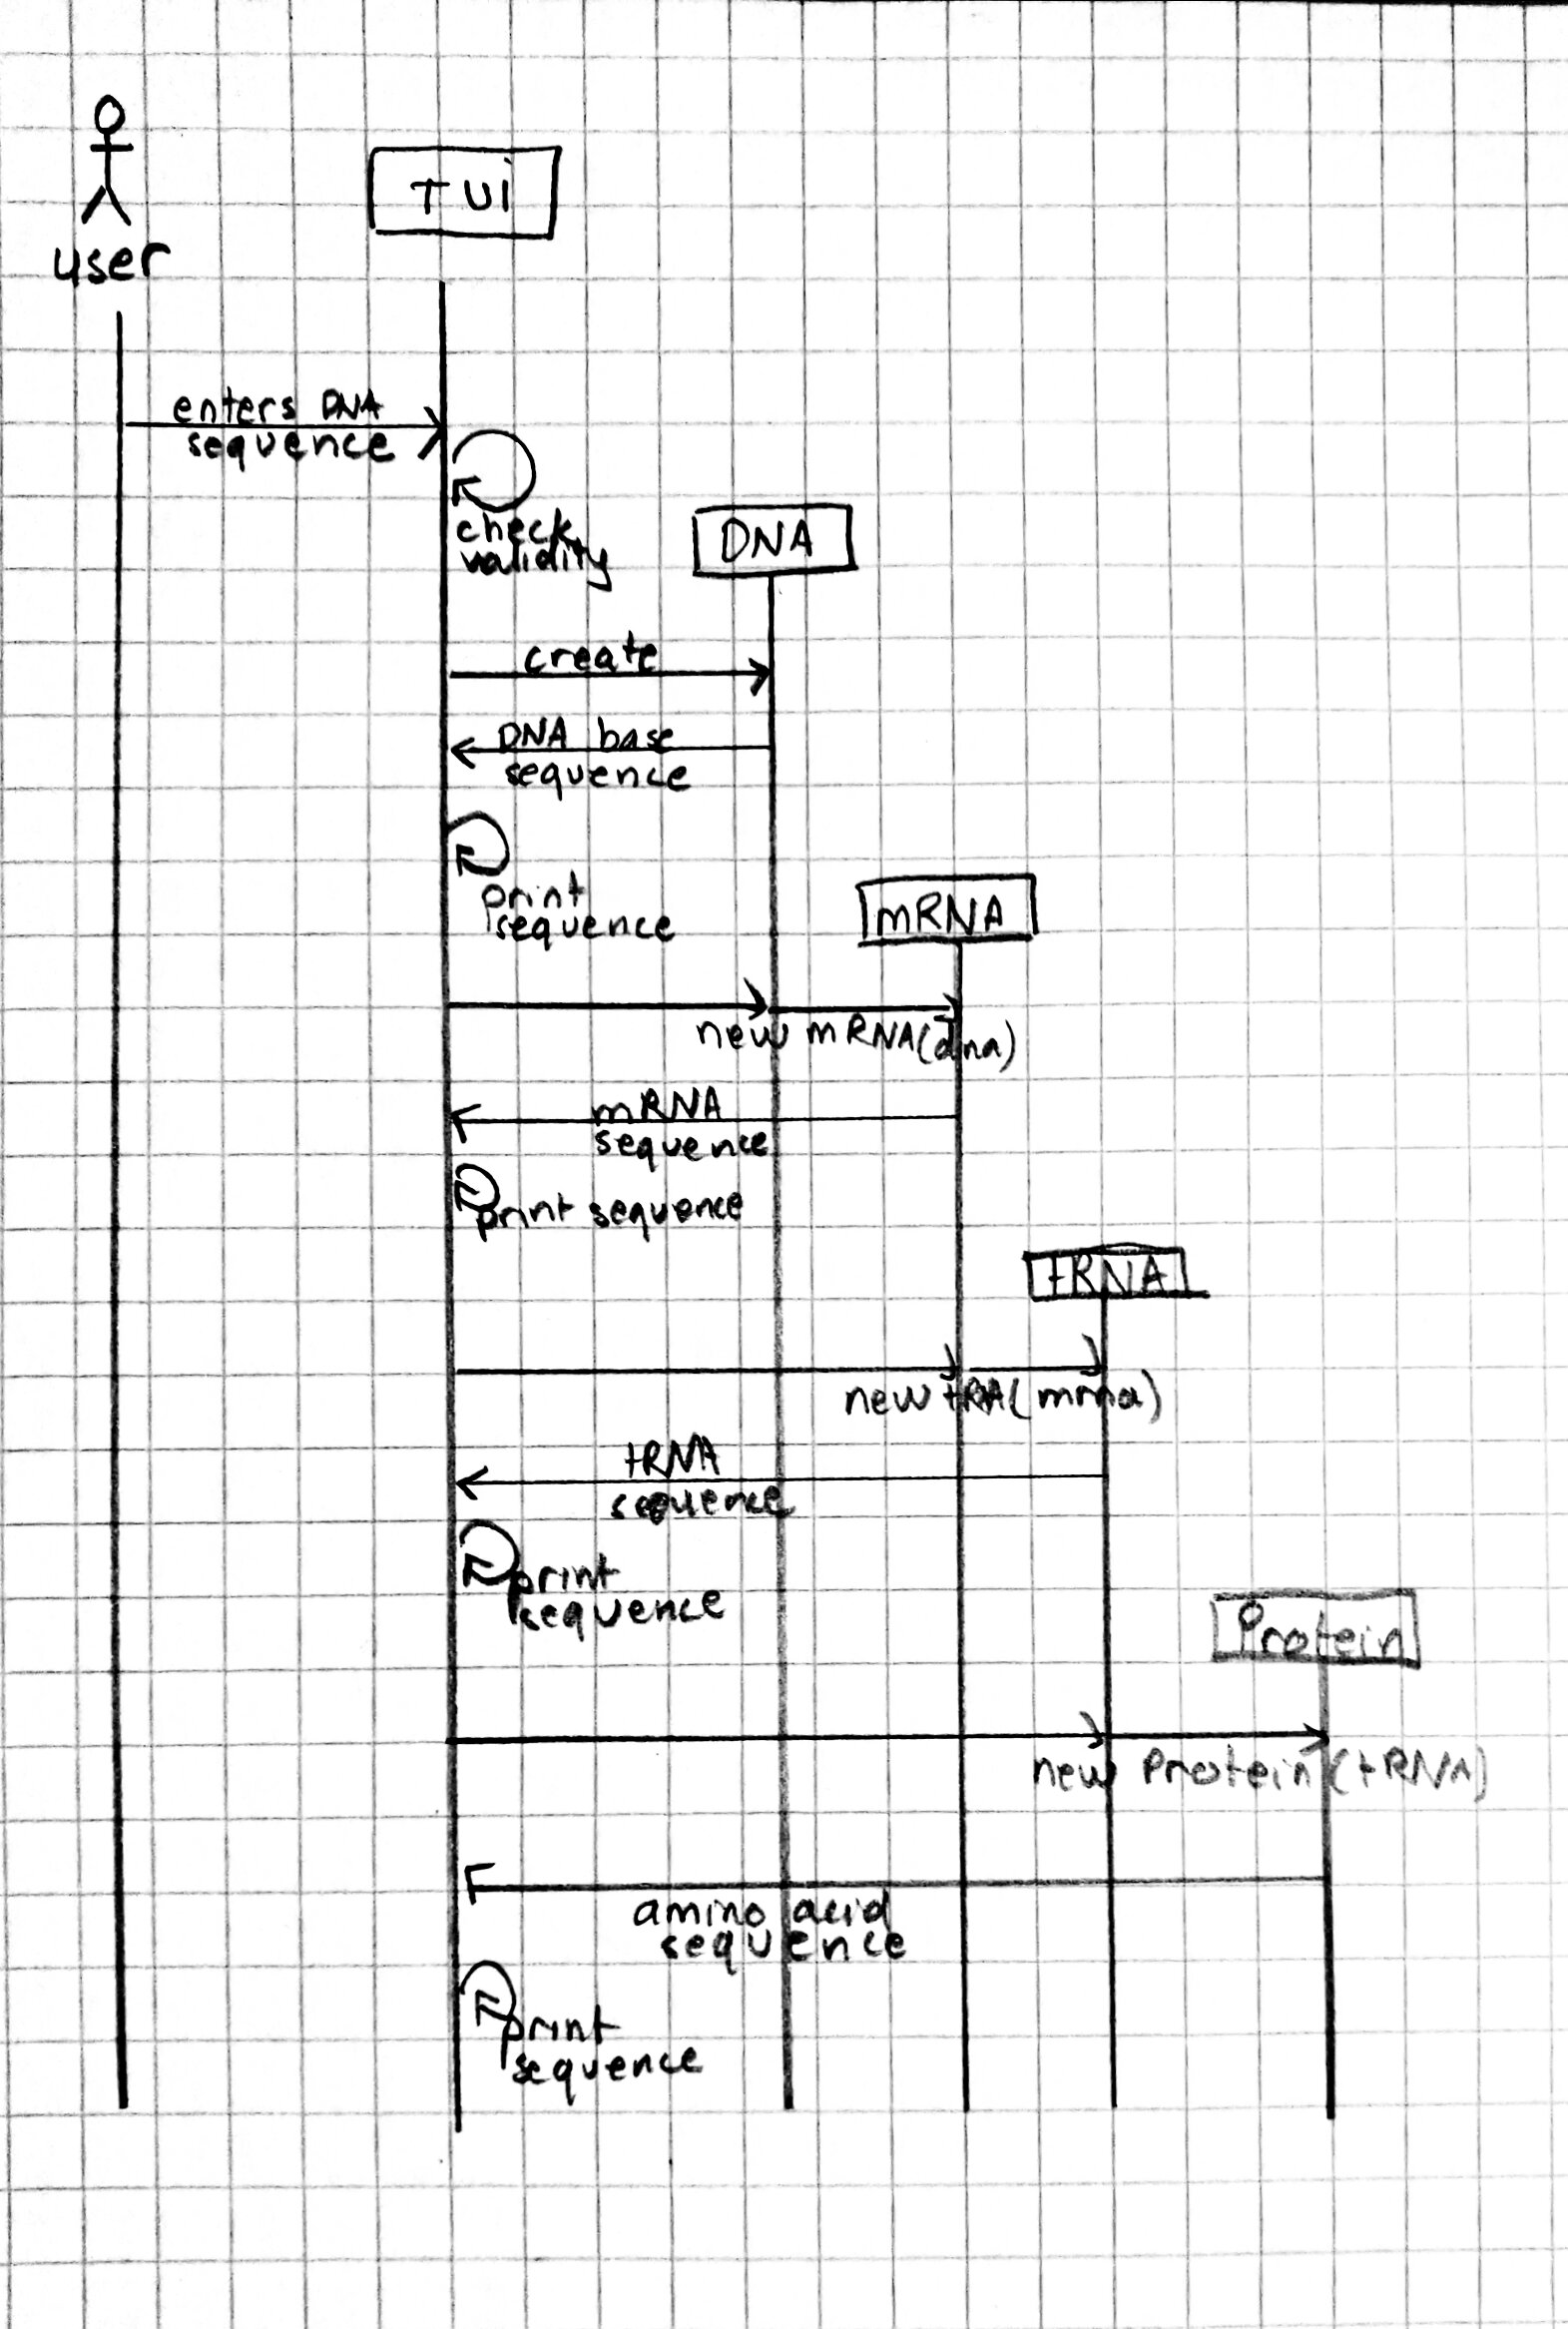 TUi
user
enters DNA
sequence
check
validity
DNA
create
DNA base
sequence
print
sequence
mRNA
new mRNA(dna)
mRNA
sequence
print sequence
tRNA
new tRA(mrna)
tRNA
sequence
print
sequence
Protein
new Protein(tRNA)
amino acid
sequence
print
sequence